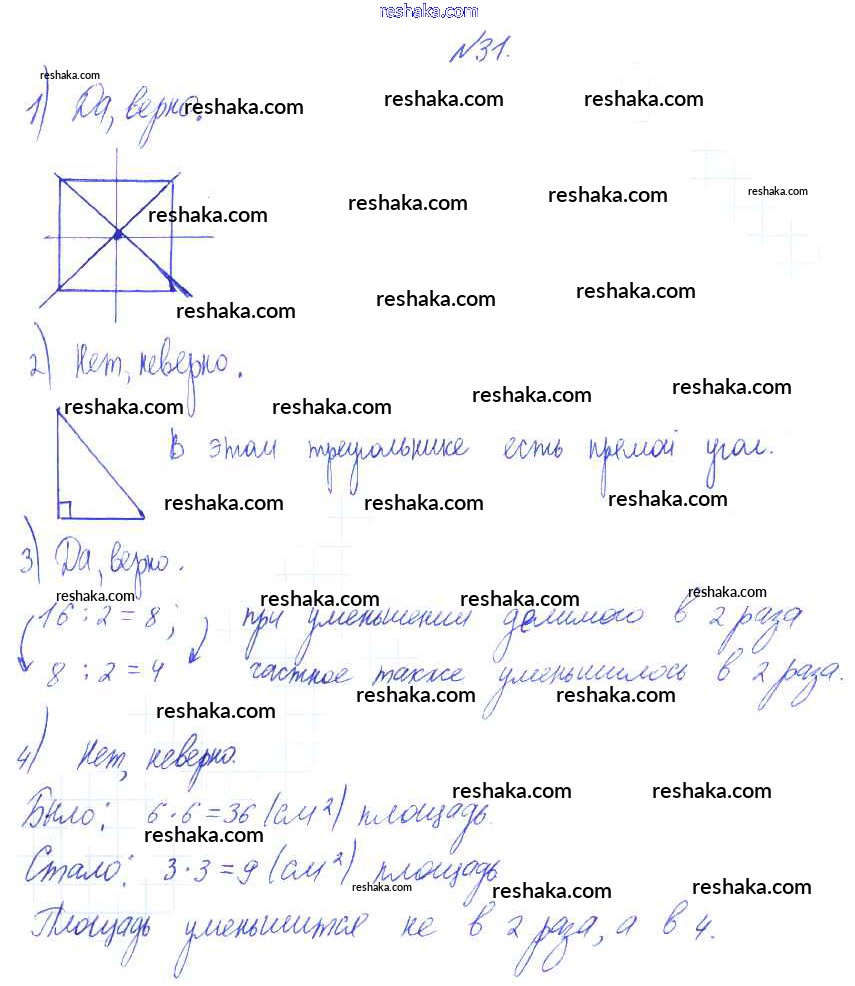 reshaka.com
№31.
reshaka.com
1) Да, верно.
reshaka.com reshaka.com reshaka.com
reshaka.com reshaka.com reshaka.com reshaka.com
reshaka.com reshaka.com reshaka.com
2) Нет, неверно.
reshaka.com reshaka.com reshaka.com reshaka.com
В этом треугольнике есть прямой угол.
reshaka.com reshaka.com reshaka.com
3) Да, верно.
reshaka.com reshaka.com reshaka.com reshaka.com
16 : 2 = 8; при уменьшении делимого в 2 раза
8 : 2 = 4 частное также уменьшилось в 2 раза.
reshaka.com reshaka.com reshaka.com
4) Нет, неверно.
reshaka.com reshaka.com
Было: 6 · 6 = 36 (см²) площадь.
reshaka.com
Стало: 3 · 3 = 9 (см²) площадь
reshaka.com reshaka.com reshaka.com
Площадь уменьшится не в 2 раза, а в 4.